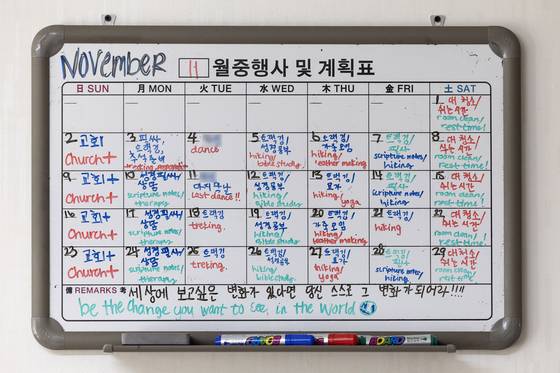 NOVEMBER 11 월중행사 및 계획표
日 SUN 月 MON 火 TUE 水 WED 木 THU 金 FRI 土 SAT
1 대청소/
쉬는시간
room clean/
rest time!
2 교회 3 4 5 트랙킹/ 6 트랙킹/ 7 트랙킹/ 8 대청소/
성경공부 가죽공방 필사 쉬는시간
Church+ dance hiking/ hiking/ scripture notes/ room clean/
bible study leather making hiking rest time!
9 교회+ 10 성경필사/ 11 12 트랙킹/ 13 트랙킹/ 14 트랙킹/ 15 대청소/
상담 마지막날 성경공부 요가 필사 쉬는시간
Church+ scripture notes/ Last dance!! hiking/ hiking/ scripture notes/ room clean/
therapy bible study yoga hiking rest time!
16 교회+ 17 성경필사/ 18 트랙킹 19 트랙킹/ 20 트랙킹/ 21 트랙킹 22 대청소/
상담 성경공부 가죽공방 쉬는시간
Church+ scripture notes/ treking. hiking/ hiking/ hiking room clean/
therapy bible study leather making rest time!
23 교회+ 24 성경필사/ 25 트랙킹 26 트랙킹/ 27 트랙킹/ 28 트랙킹/ 29 대청소/
상담 성경공부 요가 필사 쉬는시간
Church+ scripture notes/ treking. hiking/ hiking/ scripture notes/ room clean/
therapy bible study yoga hiking rest time!
備 REMARKS 考 세상에 보고싶은 변화가 있다면 당신 스스로 그 변화가 되어라!!!!
be the change you want to see, in the World
BOARD